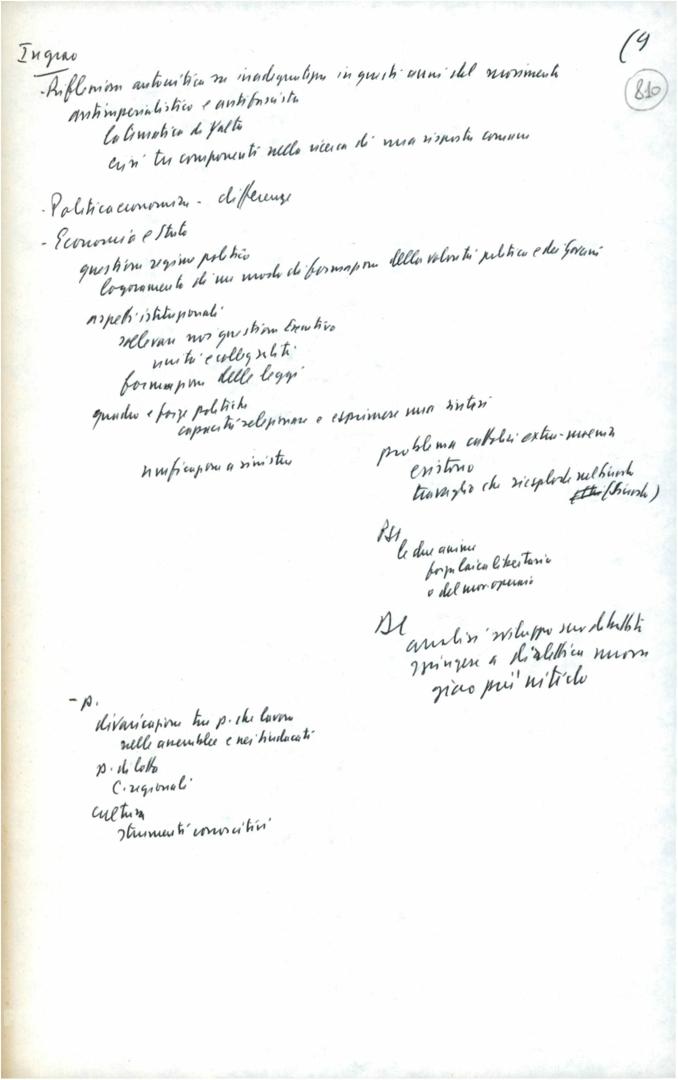 Ingrao
(9
810
- Riflessione autocritica su inadeguatezza in questi anni del movimento
antimperialistico e antifascista
la tematica di Yalta
crisi tra componenti nella ricerca di una risposta comune
- Politica economica - differenze
- Economia e Stato
questione regime politico
logoramento di un modo di formazione della volontà politica e dei Governi
aspetti istituzionali
sollevare noi questione Esecutivo
unità e collegialità
formazione delle leggi
quadro e forze politiche
capacità selezionare e esprimere una sintesi
unificazione a sinistra
problema cattolici extra-
esistono
travaglio che riesplode nel Sinodo
(Sinodo)
PSI
le due anime
forza laica libertaria
o del mov. operaio
DC
analisi sviluppo suo dibattito
spingere a dialettica nuova
gioco più nitido
- p.
divaricazione tra p. che lavora
nelle assemblee e nei sindacati
p. di lotta
C. regionali
cultura
strumenti conoscitivi